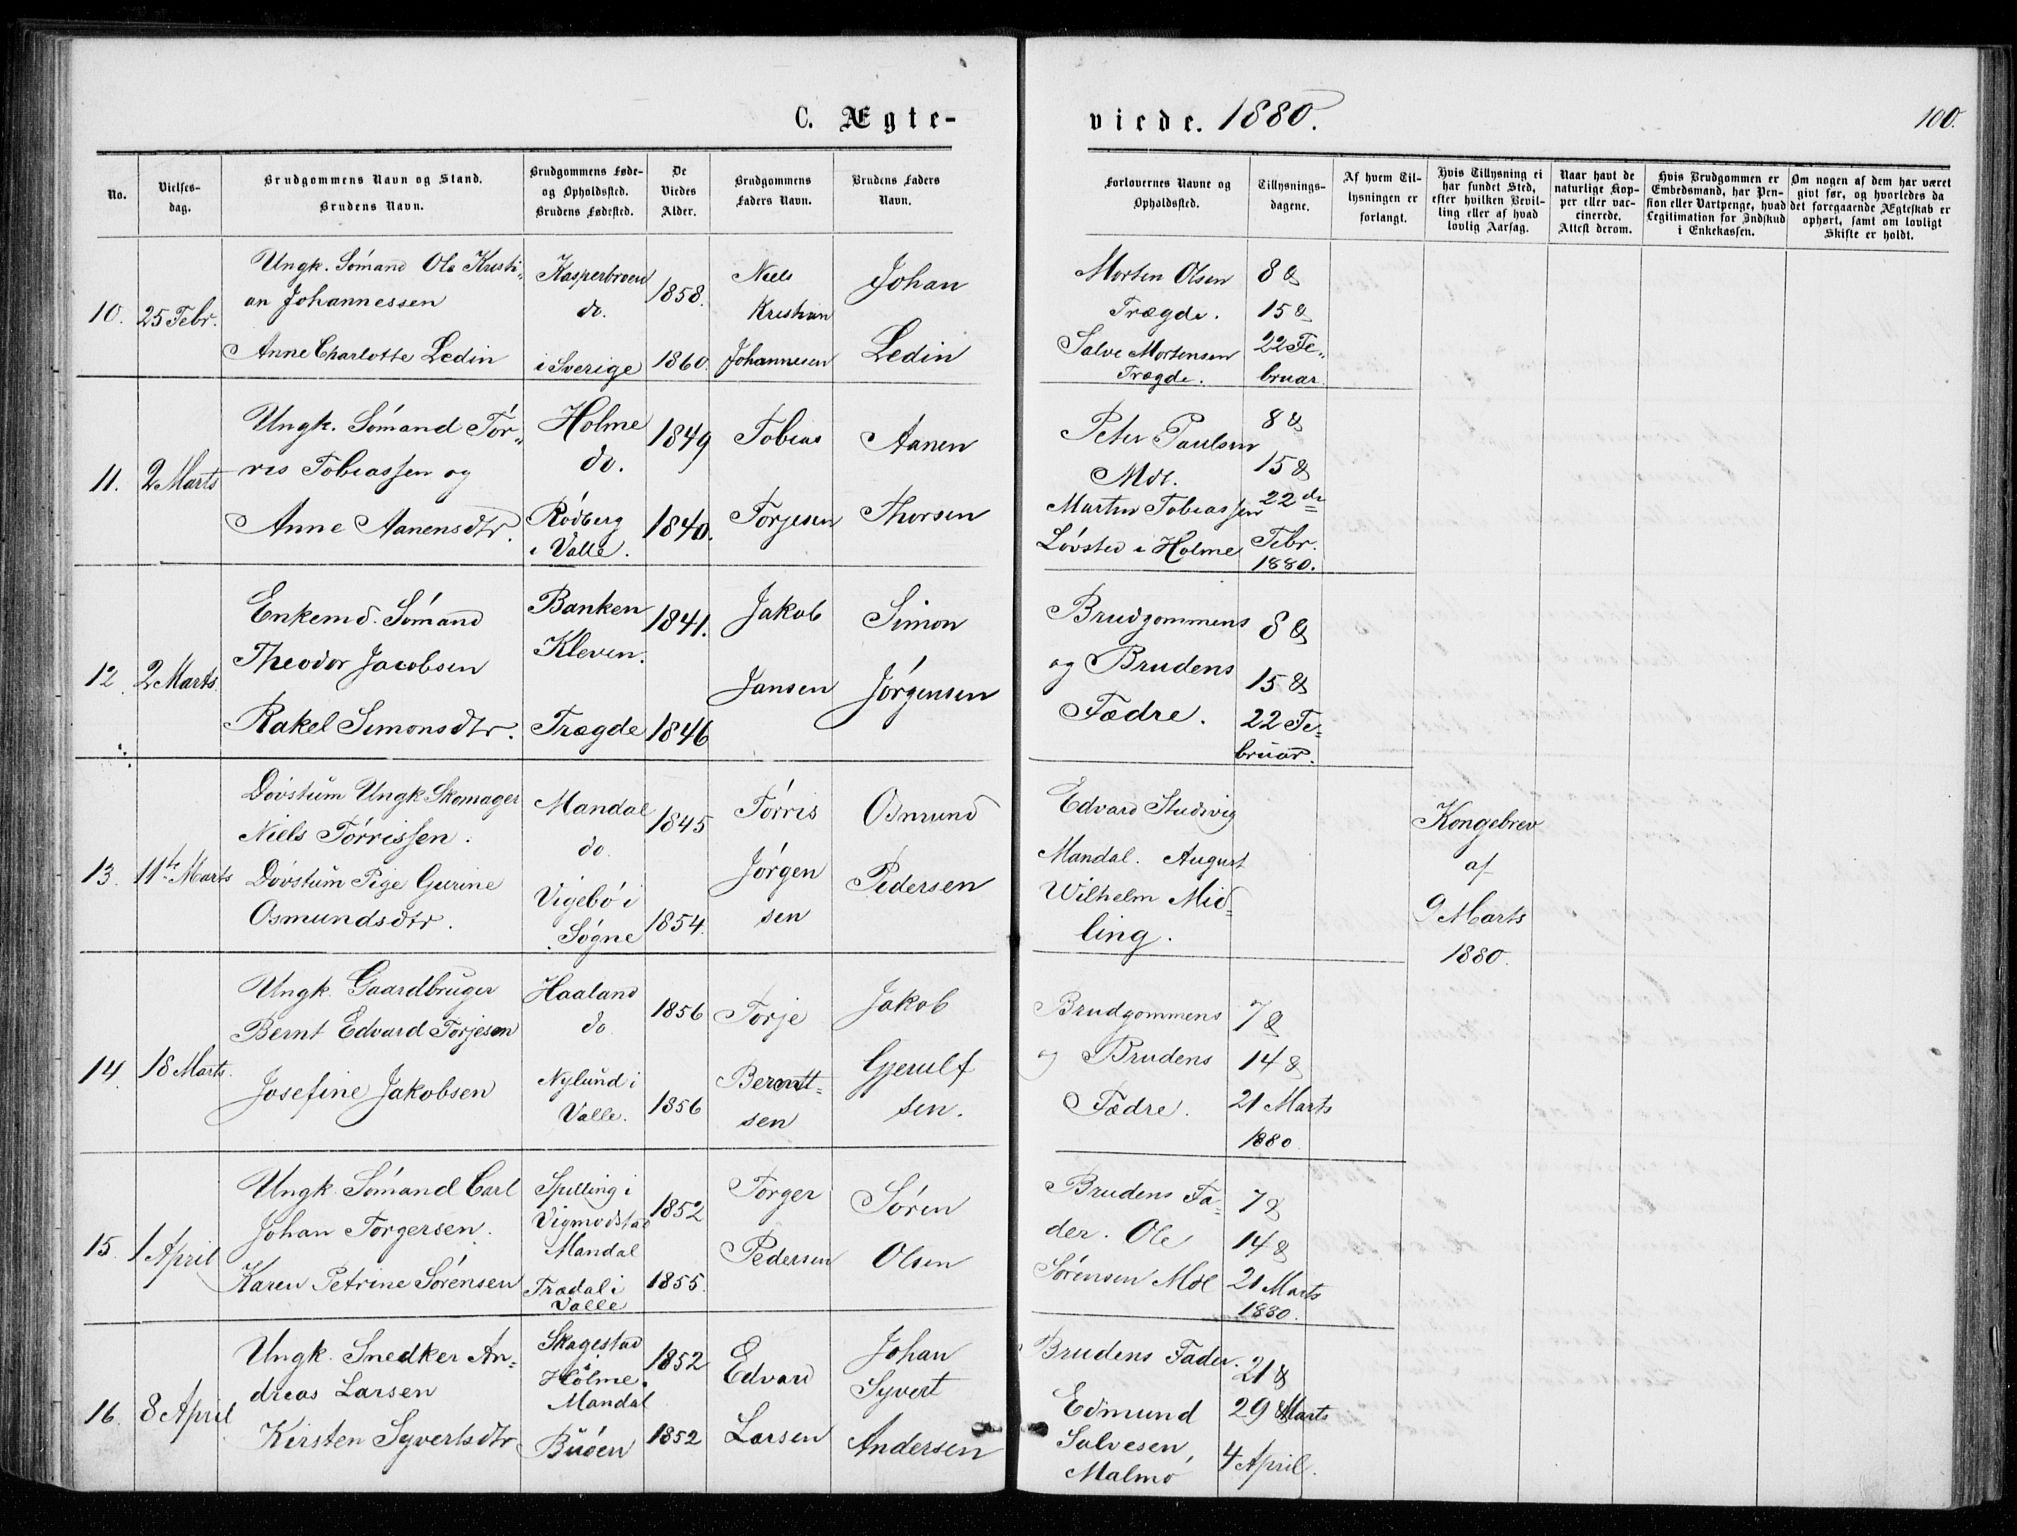 C. Ægte-
viede. 1880.
100.
No.
Vielses-
dag.
Brudgommens Navn og Stand.
Brudens Navn.
Brudgommens Føde-
og Opholdssted.
Brudens Fødested.
De
Viedes
Alder.
Brudgommens
Faders Navn.
Brudens Faders
Navn.
Forlovernes Navne og
Opholdssted.
Tillysnings-
dagene.
Af hvem Til-
lysningen er
forlangt.
Hvis Tillysning ei
har fundet Sted,
efter hvilken Bevil-
ling eller af hvad
lovlig Aarsag.
Naar havt de
naturlige Kop-
per eller vac-
cinerede.
Attest derom.
Hvis Brudgommen er
Embedsmand, har Pen-
sion eller Vartpenge, hvad
Legitimation for Indskud
i Enkekassen.
Om nogen af dem har været
givt før, og hvorledes da
det foregaaende Ægteskab er
ophørt, samt om lovligt
Skifte er holdt.
10.
25 Febr.
Ungk. Sømand Ole Kristi-
an Johannessen
Anne Charlotte Ledin
Kasperbroen
do.
i Sverige
1858.
1860.
Niels
Kristian
Johannesen
Johan
Ledin
Morten Olsen
Trægde.
Salve Mortensen
Trægde.
8 &
15 &
22 Fe-
bruar.
11.
2 Marts
Ungk. Sømand Tør-
res Tobiassen og
Anne Aanensdtr.
Holme
do.
Rødberg
i Valle.
1849
1840.
Tobias
Torjesen
Aanen
Thorsen
Peter Paulsen
Mdl.
Martin Tobiassen
Løvsted i Holme
8 &
15 &
22de
Febr.
1880.
12.
2 Marts
Enkemd. Sømand
Theodor Jacobsen
Rakel Simonsdtr.
Banken
Kleven.
Trægde
1841.
1846
Jakob
Jansen
Simon
Jørgensen
Brudgommens
og Brudens
Fædre.
8 &
15 &
22 Fe-
bruar.
13.
11te Marts
Døvstum Ungk Skomager
Niels Tørrissen.
Døvstum Pige Gurine
Osmundsdtr.
Mandal
do
Vigebø i
Søgne
1845
1854.
Tørris
Jørgen
sen
Osmund
Pedersen
Edvard Studvig
Mandal. August
Wilhelm Mid-
ling.
Kongebrev
af
9 Marts
1880.
14.
18 Marts.
Ungk. Gaardbruger
Bernt Edvard Torjesen
Josefine Jakobsen
Haaland
do.
Nylund i
Valle.
1856
1856
Torje
Berent-
sen
Jakob
Gjerulf
sen.
Brudgommens
og Brudens
Fædre.
7 &
14 &
21 Marts
1880.
15.
1 April
Ungk. Sømand Carl
Johan Torgersen.
Karen Petrine Sørensen
Spilling i
Vigmodstad
Mandal
Trædal i
Valle
1852
1855.
Torger
Pedersen
Søren
Olsen
Brudens Fa-
der. Ole
Sørensen Mdl
7 &
14 &
21 Marts
1880.
16.
8 April
Ungk. Snedker An-
dreas Larsen
Kirsten Syvertsdtr
Skagestad
i
Holme.
Mandal
Buøen
1852
1852
Edvard
Larsen
Johan
Syvert
Andersen
Brudens Fader.
Edmund
Salvesen
Malmø
21 &
29 Marts
4 April.